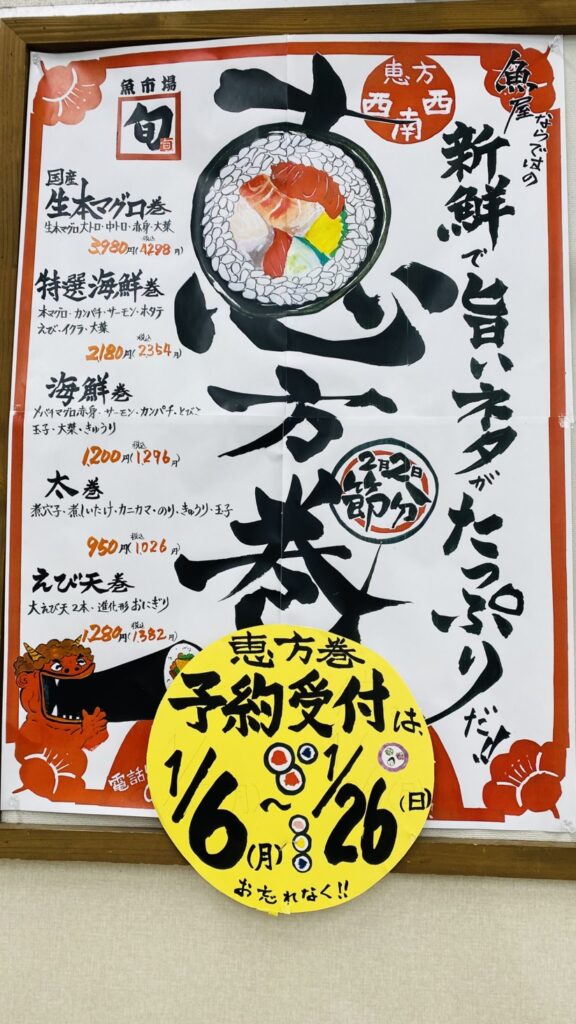 魚屋ならではの
新鮮で旨いネタがたっぷりだ!!
恵方
西南西
恵方巻
2月2日
節分
魚市場
旬
国産
生本マグロ巻
生本マグロ大トロ・中トロ・赤身・大葉
3980円(税込4298円)
特選海鮮巻
本マグロ・カンパチ・サーモン・ホタテ
えび・イクラ・大葉
2180円(税込2354円)
海鮮巻
メバチマグロ赤身・サーモン・カンパチ・とびこ
玉子・大葉・きゅうり
1,200円(税込1,296円)
太巻
煮穴子・煮しいたけ・カニカマ・のり・きゅうり・玉子
950円(税込1,026円)
えび天巻
大えび天2本・進化形おにぎり
1,280円(税込1,382円)
電話
恵方巻
予約受付は
1/6(月)〜1/26(日)
お忘れなく!!